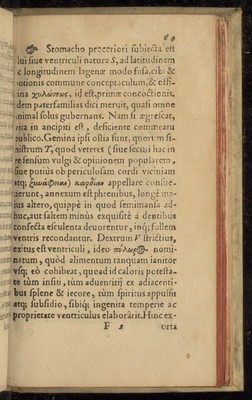 69
Stomacho proceriori subiecta est
siui siue ventriculi natura S, ad latitudinem
& longitudinem lagenæ modo fusa, cibi &
potionis commune conceptaculum, & offi-
cina χυλώσεως, id est, primæ concoctionis,
dem paterfamilias dici meruit, quasi omne
nimal solus gubernans. Nam si ægrescat,
vita in ancipiti est, deficiente commeatu
publico. Gemina ipsi ostia sunt, quorum si-
nistrum T, quod veteres (siue secuti hac in
re sensum vulgi & opinionem popularem,
siue potius ob periculosam cordi viciniam
atq; καρδίαν appellare consue-
uerunt, annexum est phrenibus, longè ma-
ius altero, quippe in quod semimansa ad-
huc, aut saltem minùs exquisitè à dentibus
confecta esculenta deuorentur, inq; follem
ventris recondantur. Dextrum V strictius,
exitus est ventriculi, ideo πυλωρὸς nomi-
natum, quòd alimentum tanquam ianitor
vsq; eò cohibeat, quead id caloris potesta-
te tùm insiti, tùm aduentitij ex adiacenti-
bus splene & iecore, tùm spiritus appulsu
atq; subsidio, sibiq; ingenita temperie ac
proprietate ventriculus elaborârit. Hinc ex-
F 2 orta